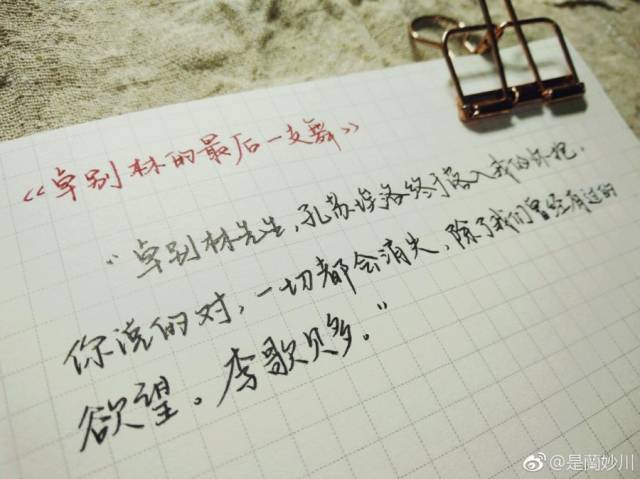 《卓别林的最后一支舞》
“卓别林先生,孔苏埃洛终于落入我的怀抱.
你说的对,一切都会消失,除了我们曾经有过的
欲望。李歌贝多。”
@是蘭妙川